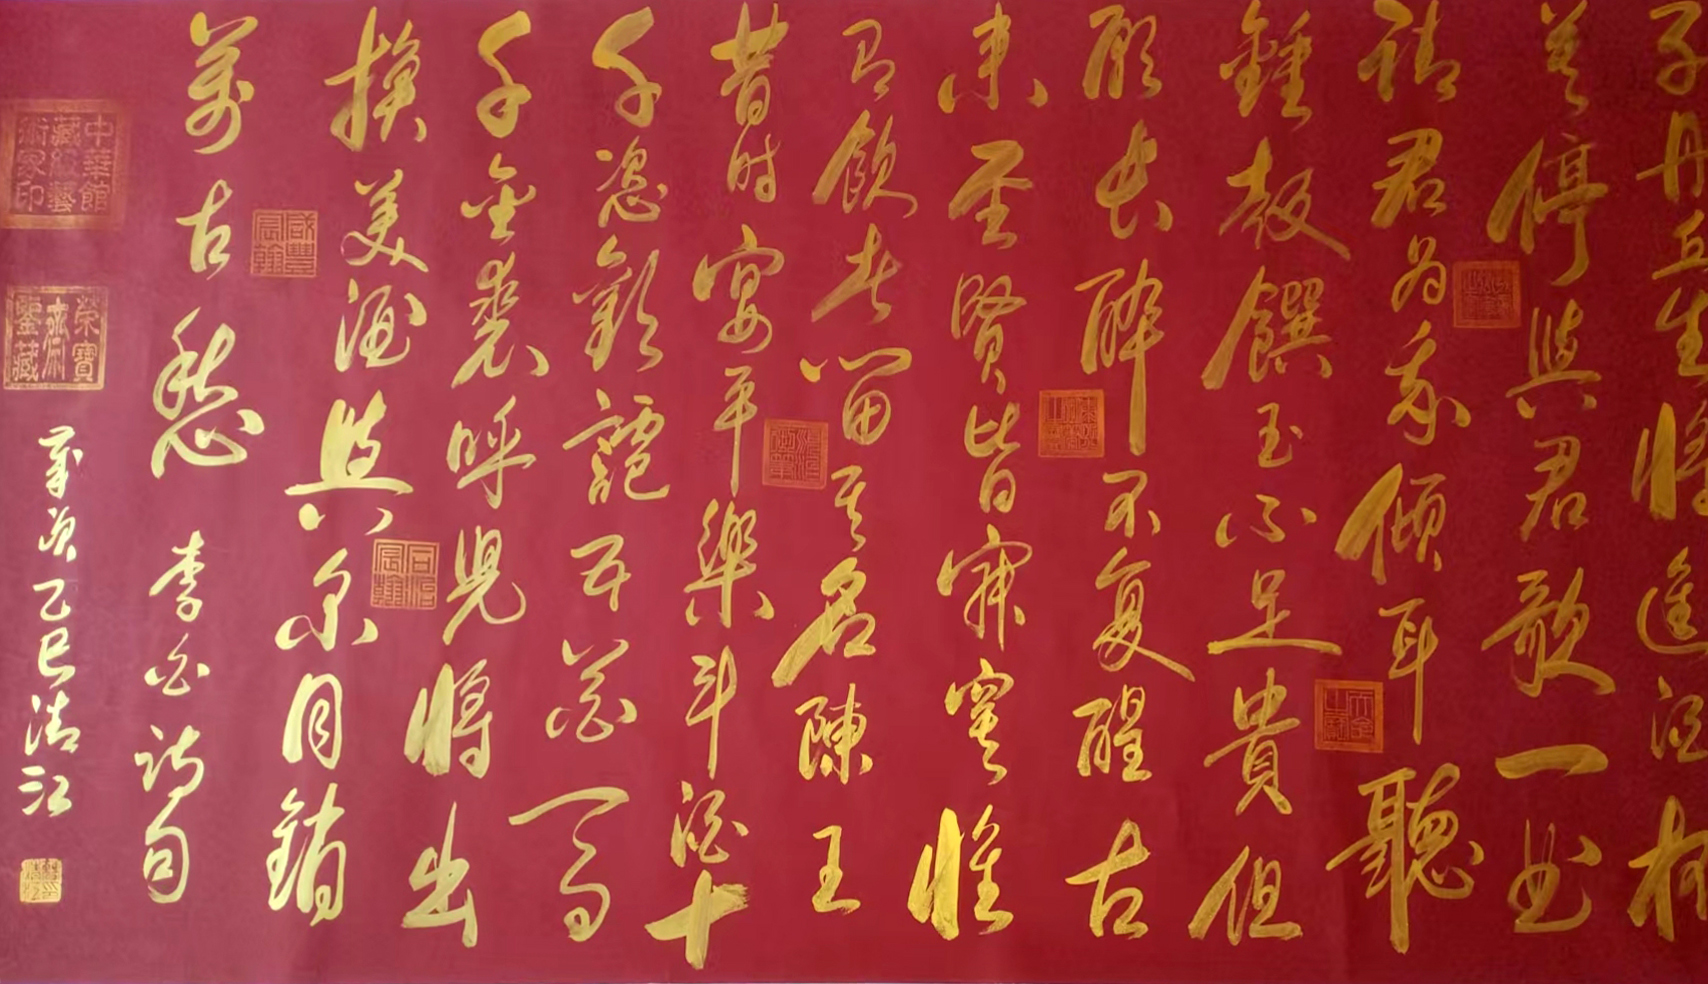 子丹丘生將進酒杯
莫停與君歌一曲
請君為我傾耳聽
鍾鼓饌玉不足貴但
願長醉不復醒古
来圣賢皆寂寞惟
有飲者留其名陳王
昔時宴平樂斗酒十
千恣歡謔五花馬
千金裘呼兒將出
換美酒與尔同銷
萬古愁 李白詩句
歲次乙巳清江
咸豐宸翰
同治宸翰
中華館藏級藝術家印
榮寶齋鑒藏